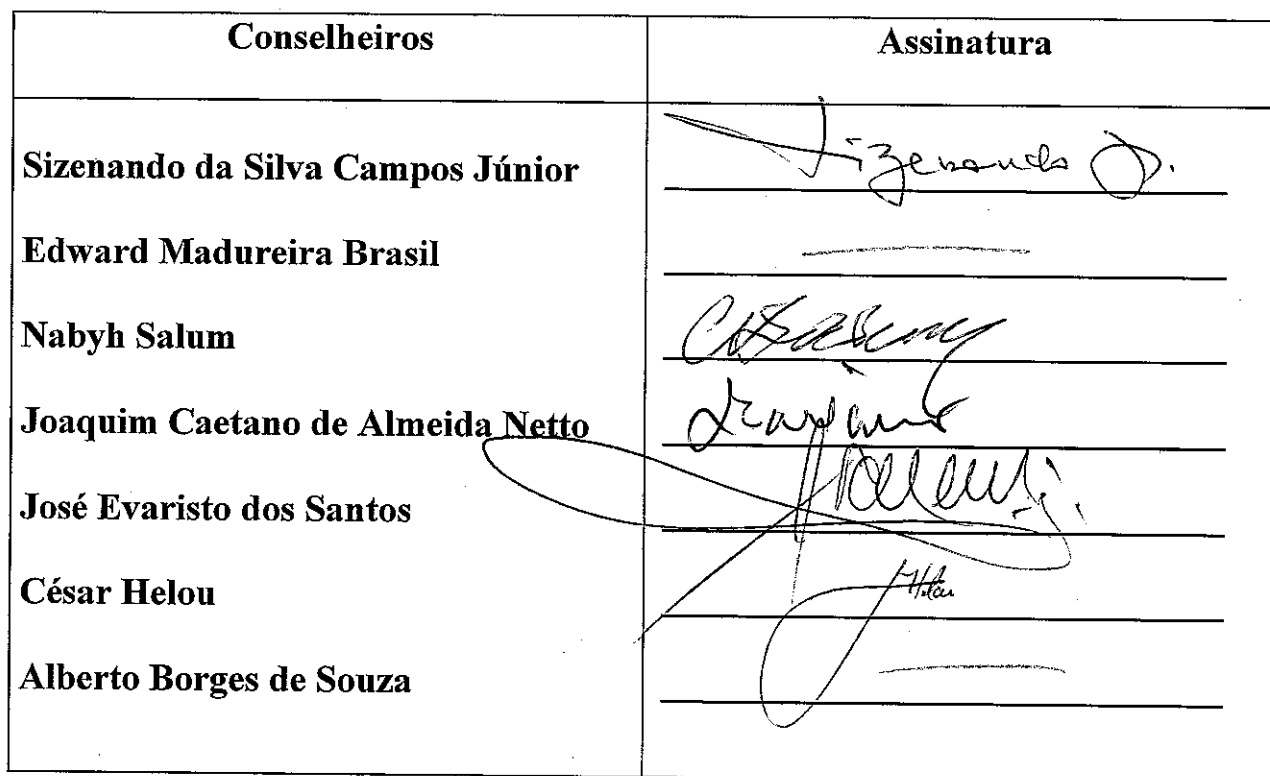 Conselheiros Assinatura
Sizenando da Silva Campos Júnior Sizenando J.
Edward Madureira Brasil
Nabyh Salum
Joaquim Caetano de Almeida Netto
José Evaristo dos Santos
César Helou
Alberto Borges de Souza